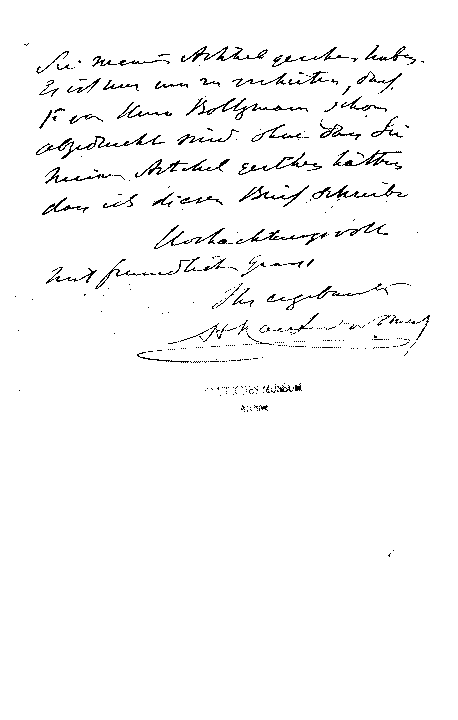 Sie meinen Artikel gesehen haben.
Es ist nur um zu verhüten, dass
von Herrn Boltzmann schon
abgedruckt wird ohne dass Sie
meinen Artikel gesehen hätten
dass ich diesen Brief schreibe
Hochachtungsvoll
mit freundlichem Gruss
Ihr ergebenster
MUSEUM